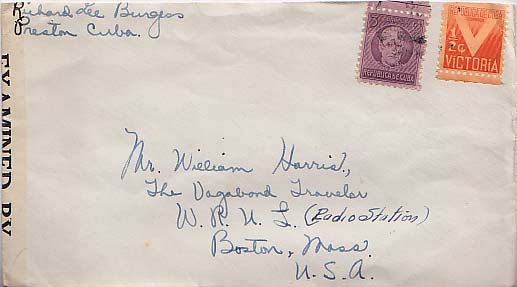 Richard Lee Burgess
Preston Cuba.
3
REPUBLICA DE CUBA
REPUBLICA DE CUBA
V
1/2 ¢
VICTORIA
EXAMINED BY
Mr. William Harris,
The Vagabond Traveler
W. R. U. L. (Radio Station)
Boston, Mass.
U. S. A.